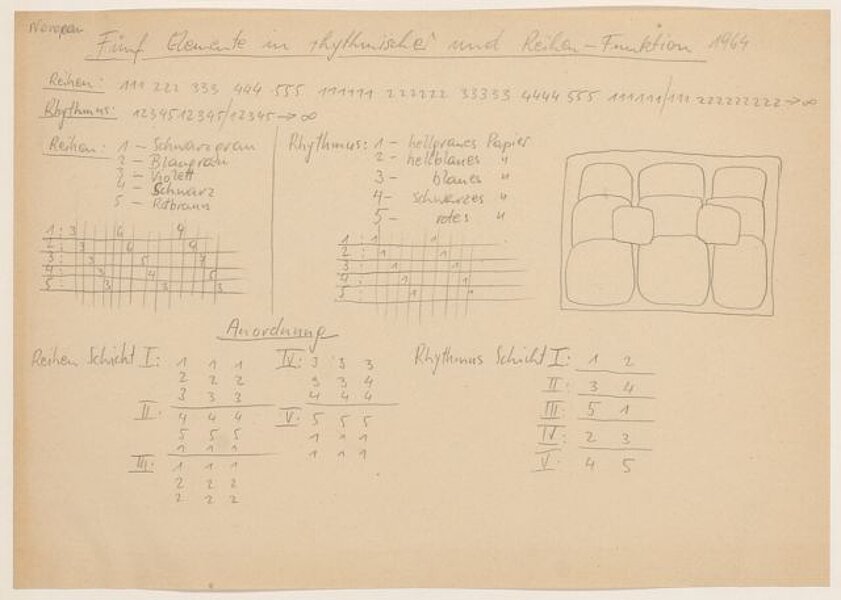 Fünf Elemente in rhythmischer und Reihen-Funktion 1964
Reihen: 111 222 333 444 555 111111 222222 33333 4444 555 111111/111 222222222 → ∞
Rhythmus: 1234512345/12345 → ∞
Reihen: 1 – Schwarzgrau
2 – Blaugrau
3 – Violett
4 – Schwarz
5 – Rotbraun
Rhythmus: 1 – hellgraues Papier
2 – hellblaues "
3 – blaues "
4 – schwarzes "
5 – rotes "
1 : 3 6 9
2 : 3 6 9
3 : 3 5
4 : 3 4 5
5 : 3 3 3
1 : 1 1
2 : 1 1
3 : 1 1
4 : 1 1
5 : 1
Anordnung
Reihen Schicht I: 1 1 1
2 2 2
3 3 3
II: 4 4 4
5 5 5
1 1 1
III: 1 1 1
2 2 2
2 2 2
IV: 3 3 3
3 3 4
4 4 4
V: 5 5 5
1 1 1
1 1 1
Rhythmus Schicht I: 1 2
II: 3 4
III: 5 1
IV: 2 3
V: 4 5